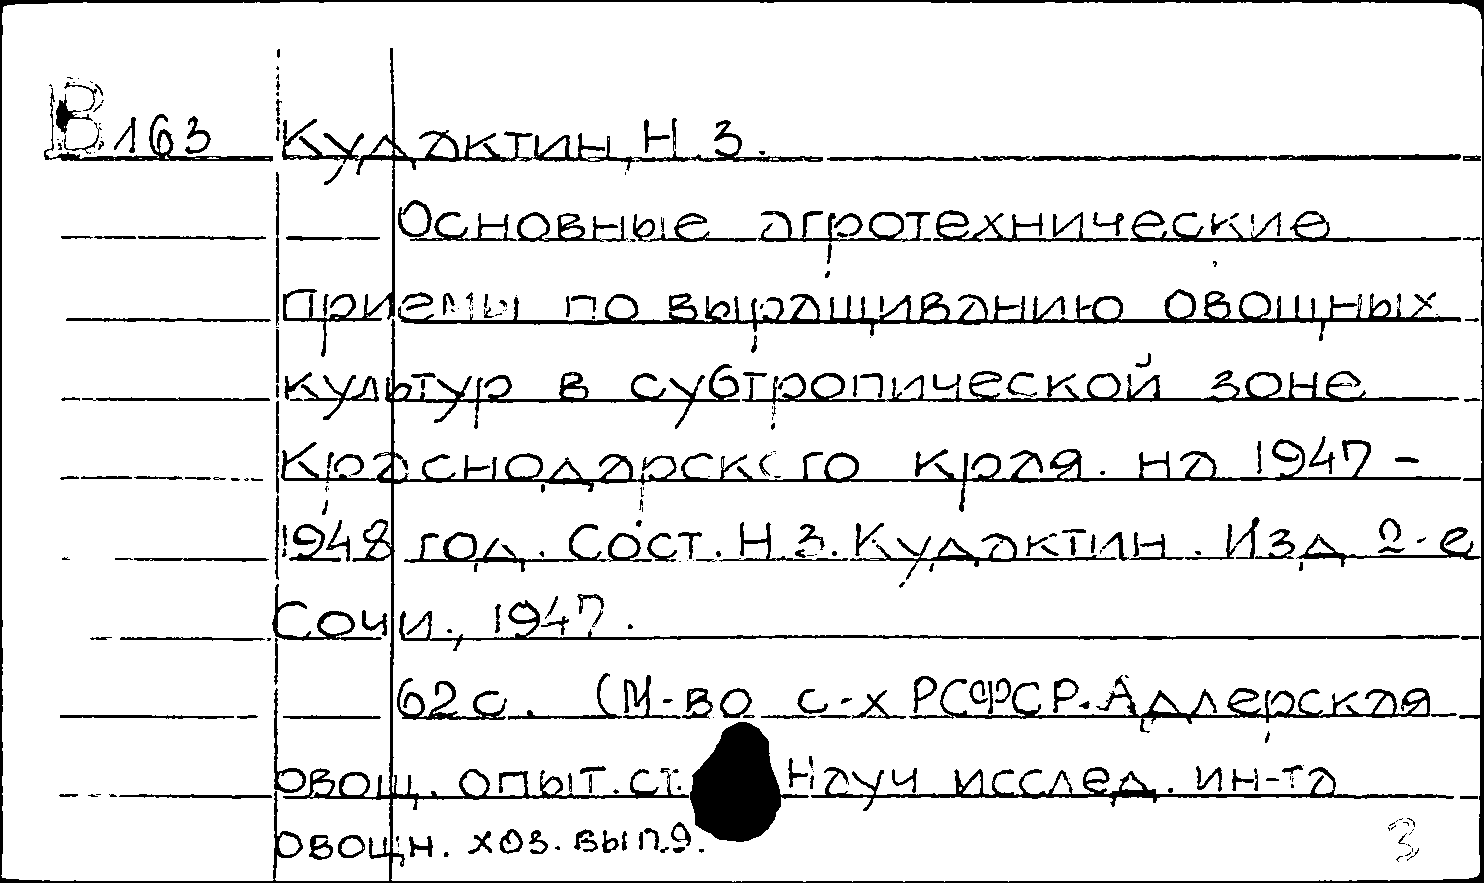 В163 Кудактин, Н.З.
Основные агротехнические
приемы по выращиванию овощных
культур в субтропической зоне
Краснодарского края. на 1947-
1948 год. Сост. Н.З. Кудактин. Изд 2-е
Сочи., 1947.
62 с. (М-во с-х РСФСР. Адлерская
овощ. опыт. ст. Науч исслед. ин-та
овощн. хоз. вып.9.
3